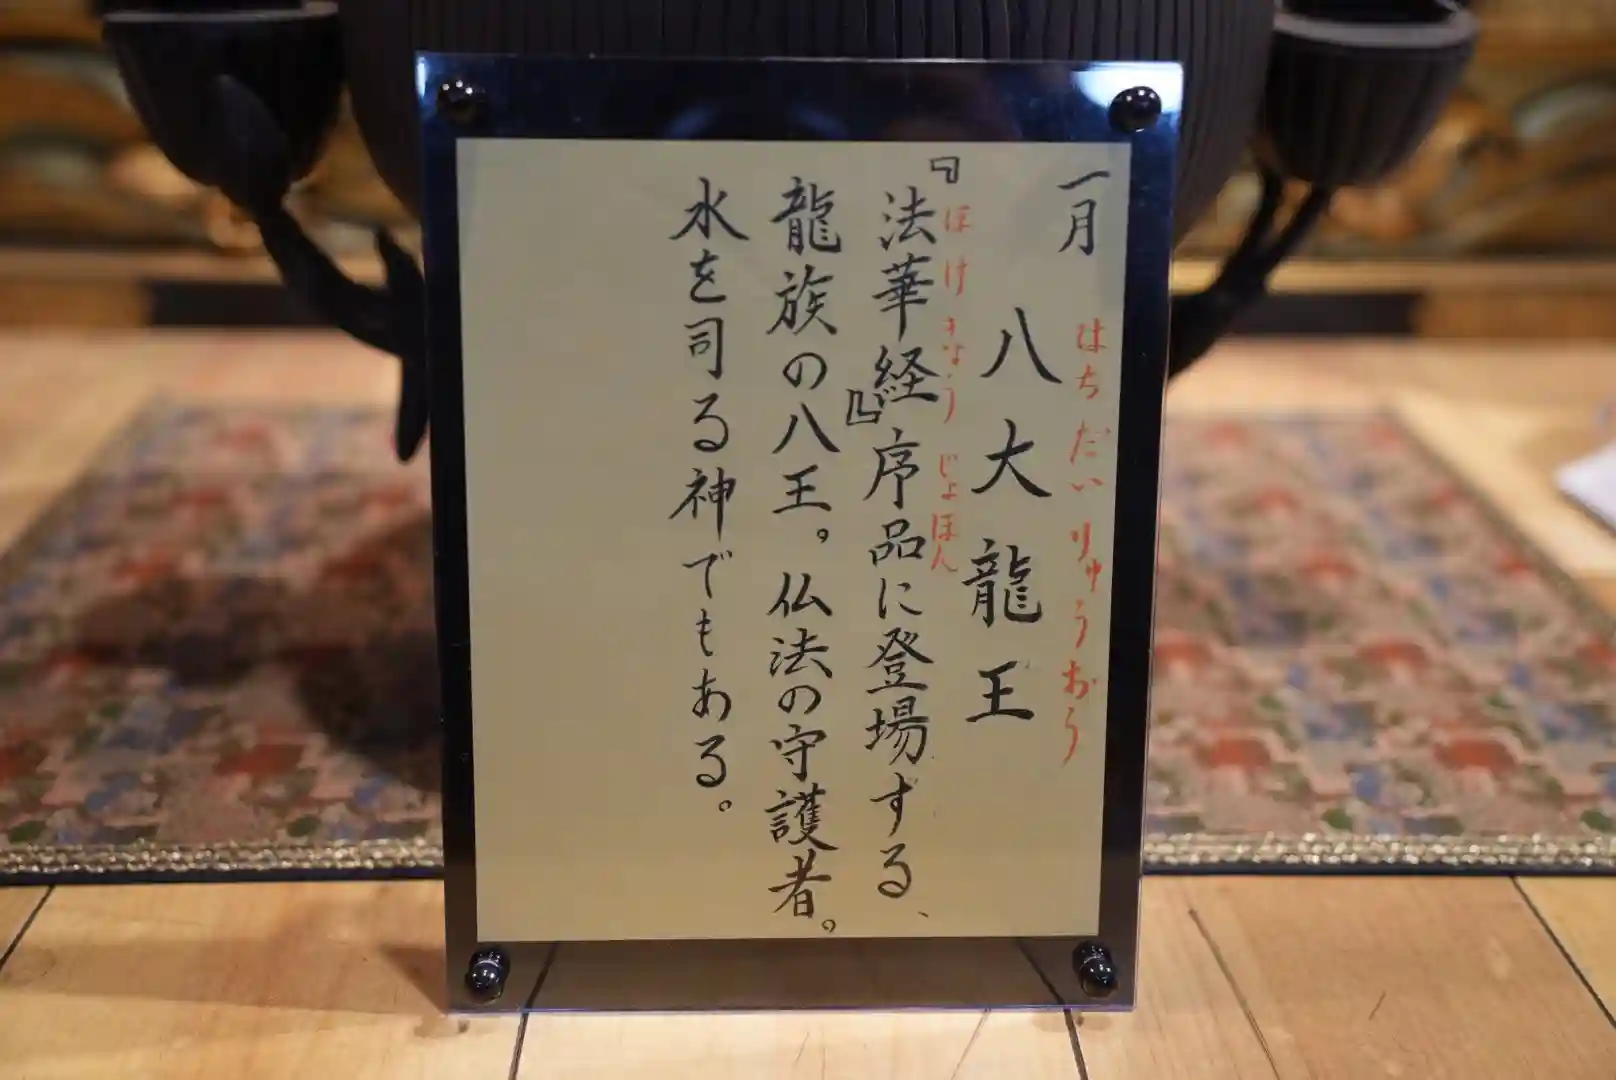 一月
八大龍王
はちだいりゅうおう
『法華経』序品に登場する、
ほけきょう じょほん
龍族の八王。仏法の守護者。
水を司る神でもある。